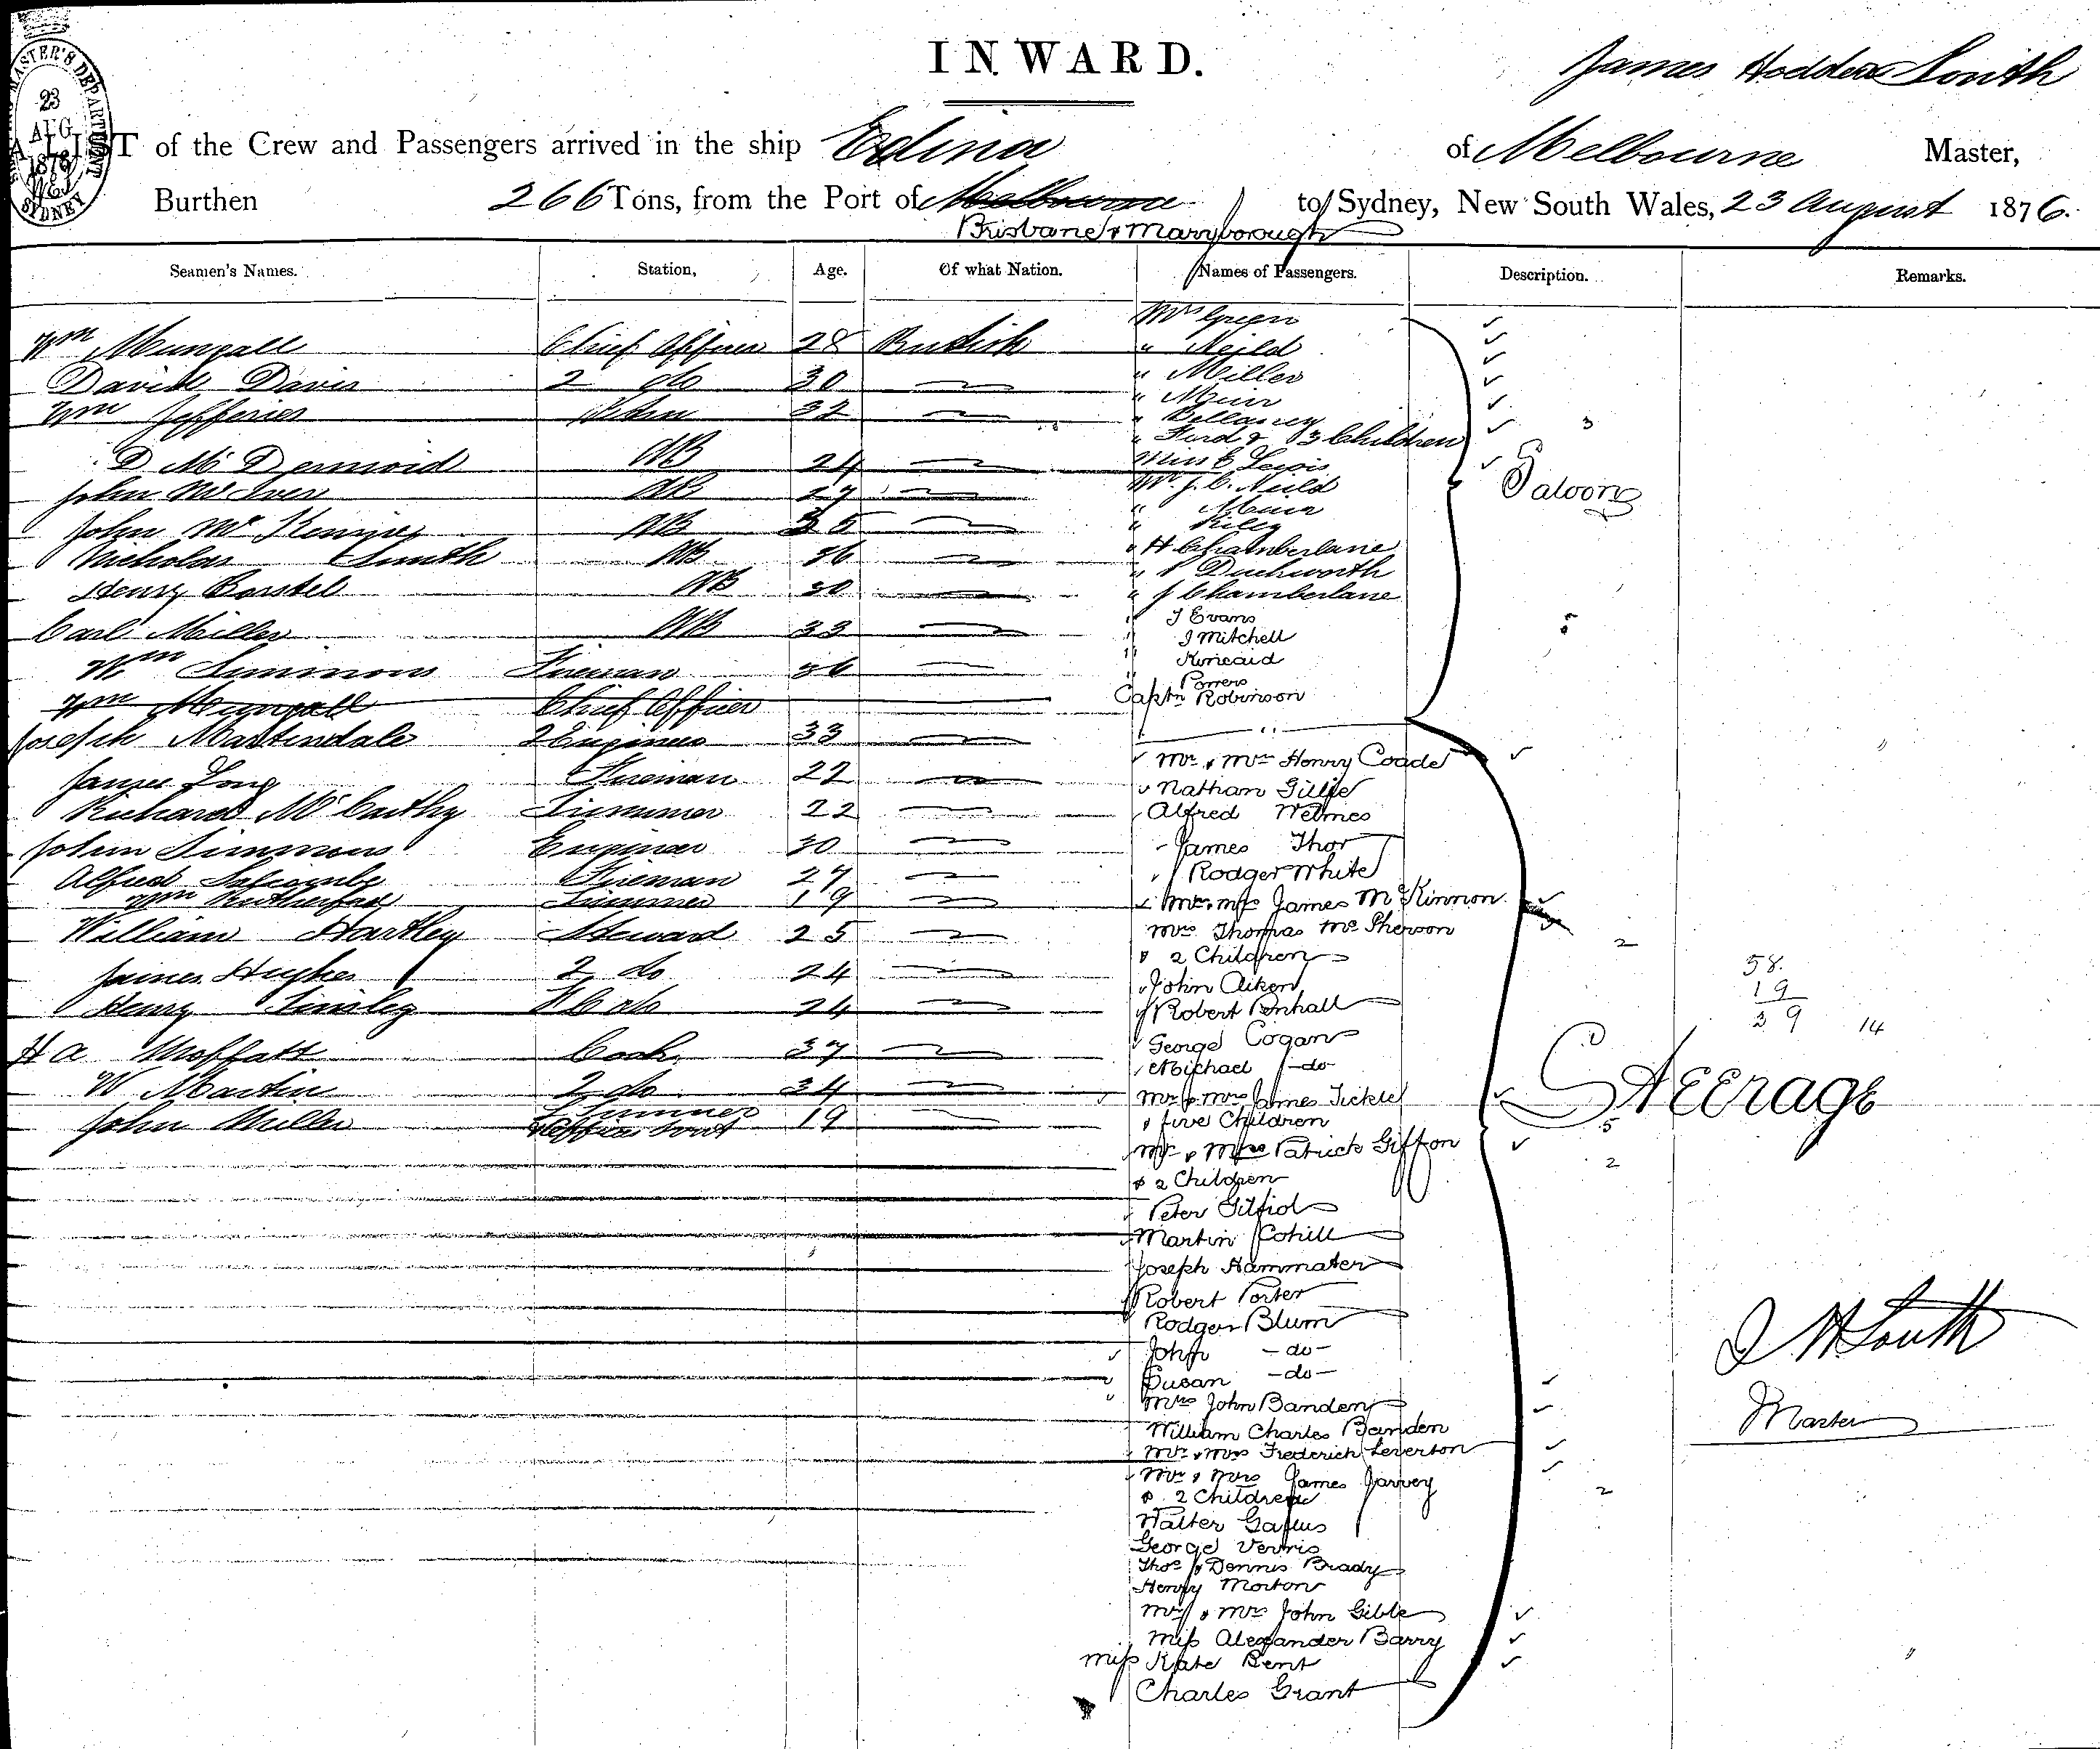 INWARD.
James Hodder South
MASTER'S DEPARTMENT
23
AUG
1876
SYDNEY
A LIST of the Crew and Passengers arrived in the ship Edina of Melbourne Master,
Burthen 266 Tons, from the Port of Melbourne to Sydney, New South Wales, 23 August 1876.
Brisbane & Maryborough
Seamen's Names. Station, Age. Of what Nation. Names of Passengers. Description. Remarks.
Wm Mungall Chief Officer 28 British
David Davis 2 do 30
Wm Jefferies 32
D McDermoid AB 24
John McIver AB 27
John McKenney AB 35
Nicholas Smith AB 36
Henry Borstel AB 30
Carl Miller AB 33
Wm Simmons Fireman 36
Wm Mungall Chief Officer
Joseph Martindale 2 Engineer 33
James Long Fireman 22
Richard McCarthy Trimmer 22
John Simmons Engineer 30
Alfred Fireman 27
Wm Rutherford Trimmer 19
William Hartley Steward 25
James Hughes 2 do 24
Henry Tinsley 24
H A Moffatt Cook 37
W Martin 2 do 34
John Miller Trimmer 19
Mrs Green
" Neild
" Miller
" Muir
" Bellamy
" Furd & 3 Children 3
Miss E Lewis
Saloon
Mr. J. C. Neild
" Muir
" Riley
" H Chamberlane
" Duckworth
" J Chamberlane
" J Evans
" J Mitchell 5
" Kincaid
" Porrers
Captn Robinson
Mr & Mrs Henry Coade
Nathan Gillie
Alfred Welmes
James Thor
Rodger White
Mr & Mrs James McKinnon
Mrs Thomas McPherson
& 2 Children 2
John Aiken
Robert Penhall
George Cogan
Michael -do-
Mr & Mrs James Tickle
& five Children 5
Mr & Mrs Patrick Giffon
& 2 Children 2
Peter Gilfid
Martin Cohill
Joseph Hammater
Robert Porter
Rodger Blum
John -do-
Susan -do-
Mrs John Banden
William Charles Banden
Mr & Mrs Frederick Leverton
Mr & Mrs James Jarvey
& 2 Children 2
Walter
George Verris
Thos & Dennis Brady
Henry Morton
Mr & Mrs John Gible
Miss Alexander Barry
Miss Kate Bent
Charles Grant
Steerage
58.
19
39 14
J H South
Master